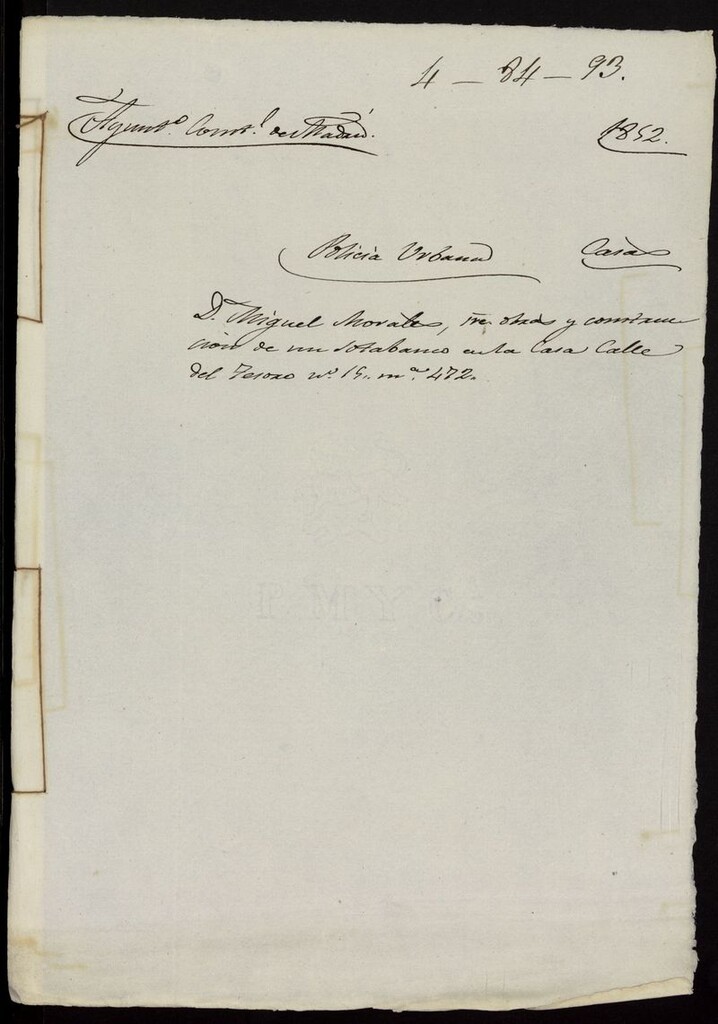 4 - 84 - 93.
Ayunt.º Const.l de Madrid.
1852.
Policia Urbana Casas
D. Miguel Morales, sre. obras y construc
cion de un sotabanco en la Casa Calle
del Tesoro nº. 15. mª. 472.